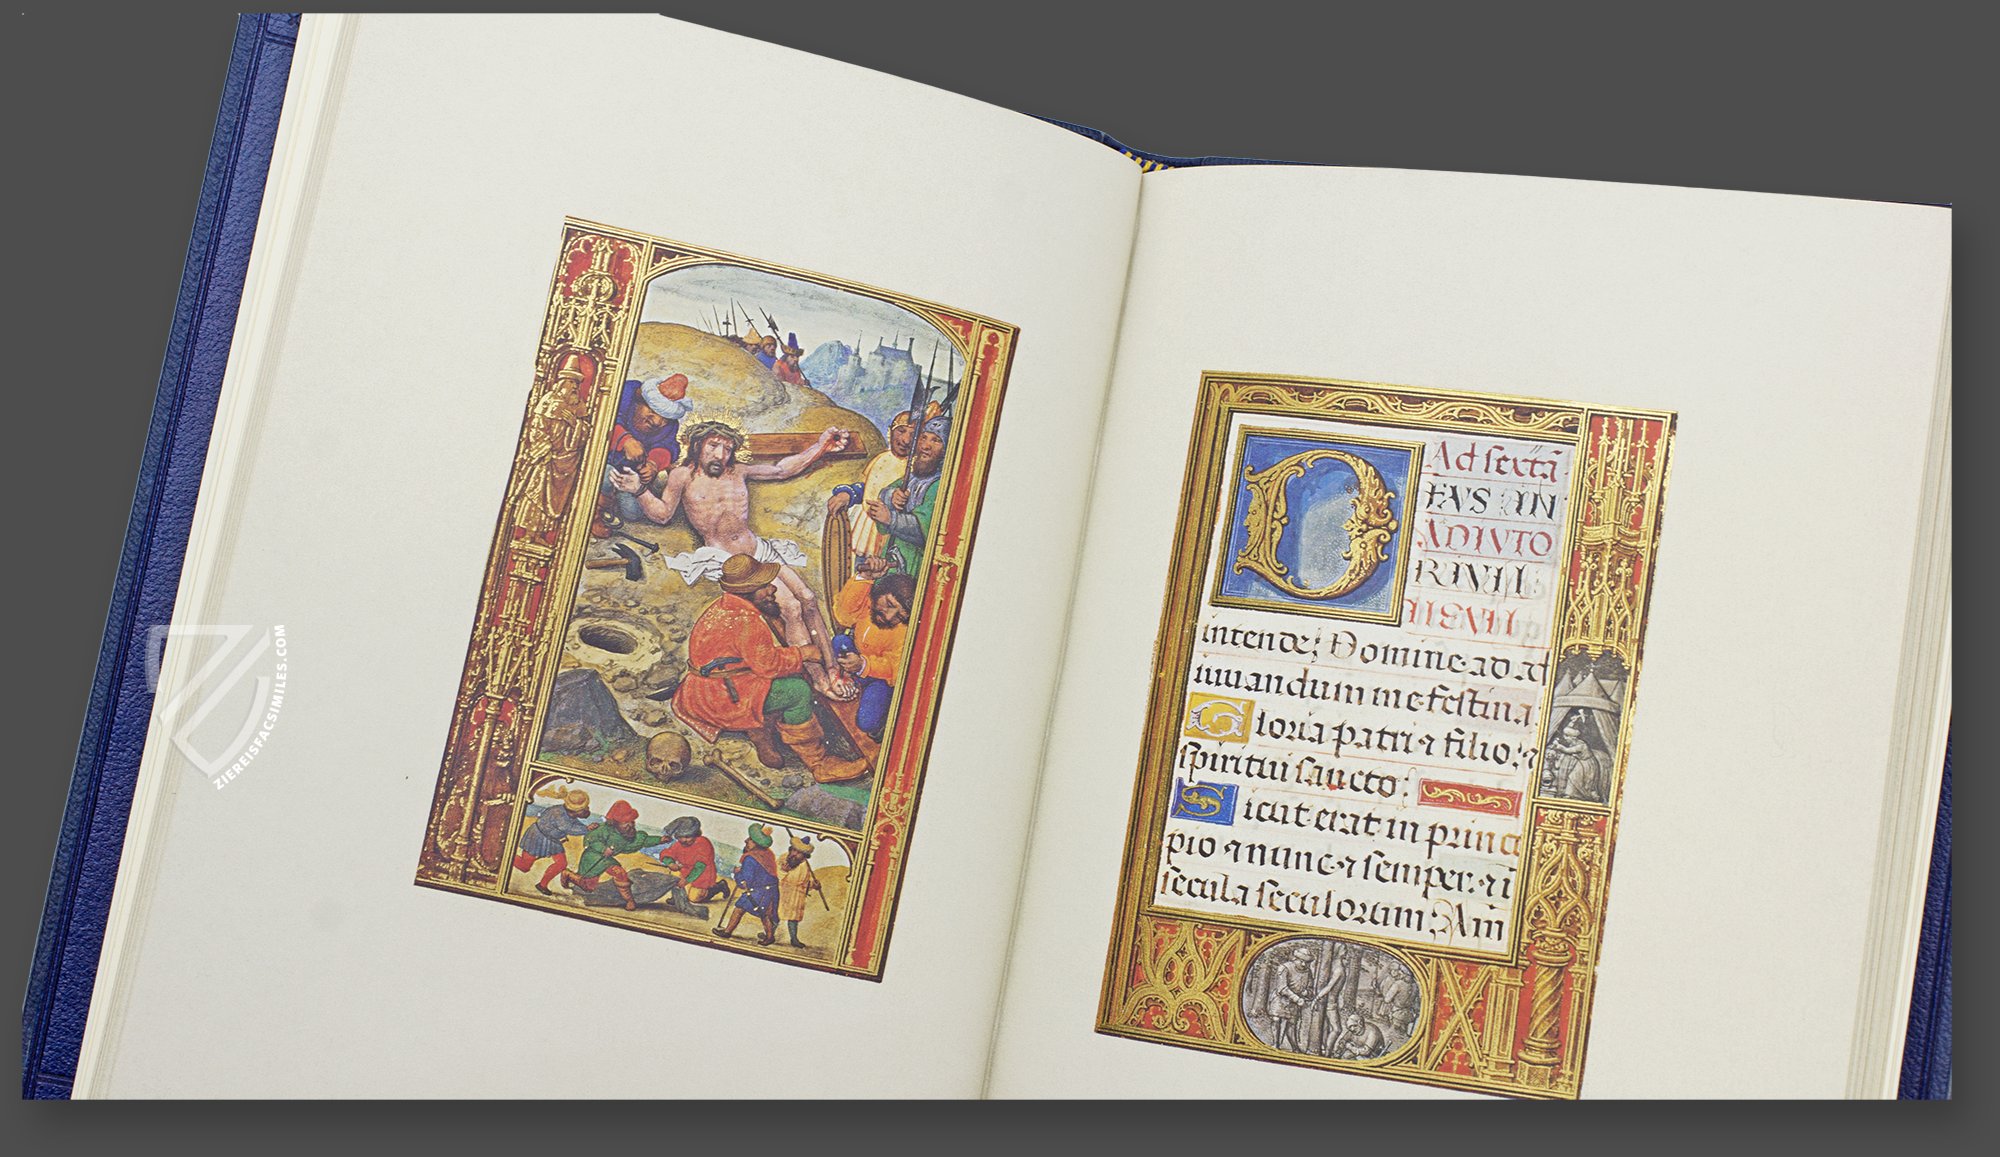 ZIEREISFACSIMILES.COM
Ad sextā
DEVS IN
ADIVTO
RIVM
MEVM
intende; Domine ad ad
iuuandum me festina
Gloria patri ⁊ filio: ⁊
spiritui sancto
Sicut erat in princi
pio ⁊ nunc ⁊ semper. ⁊ ī
secula seculorum Am